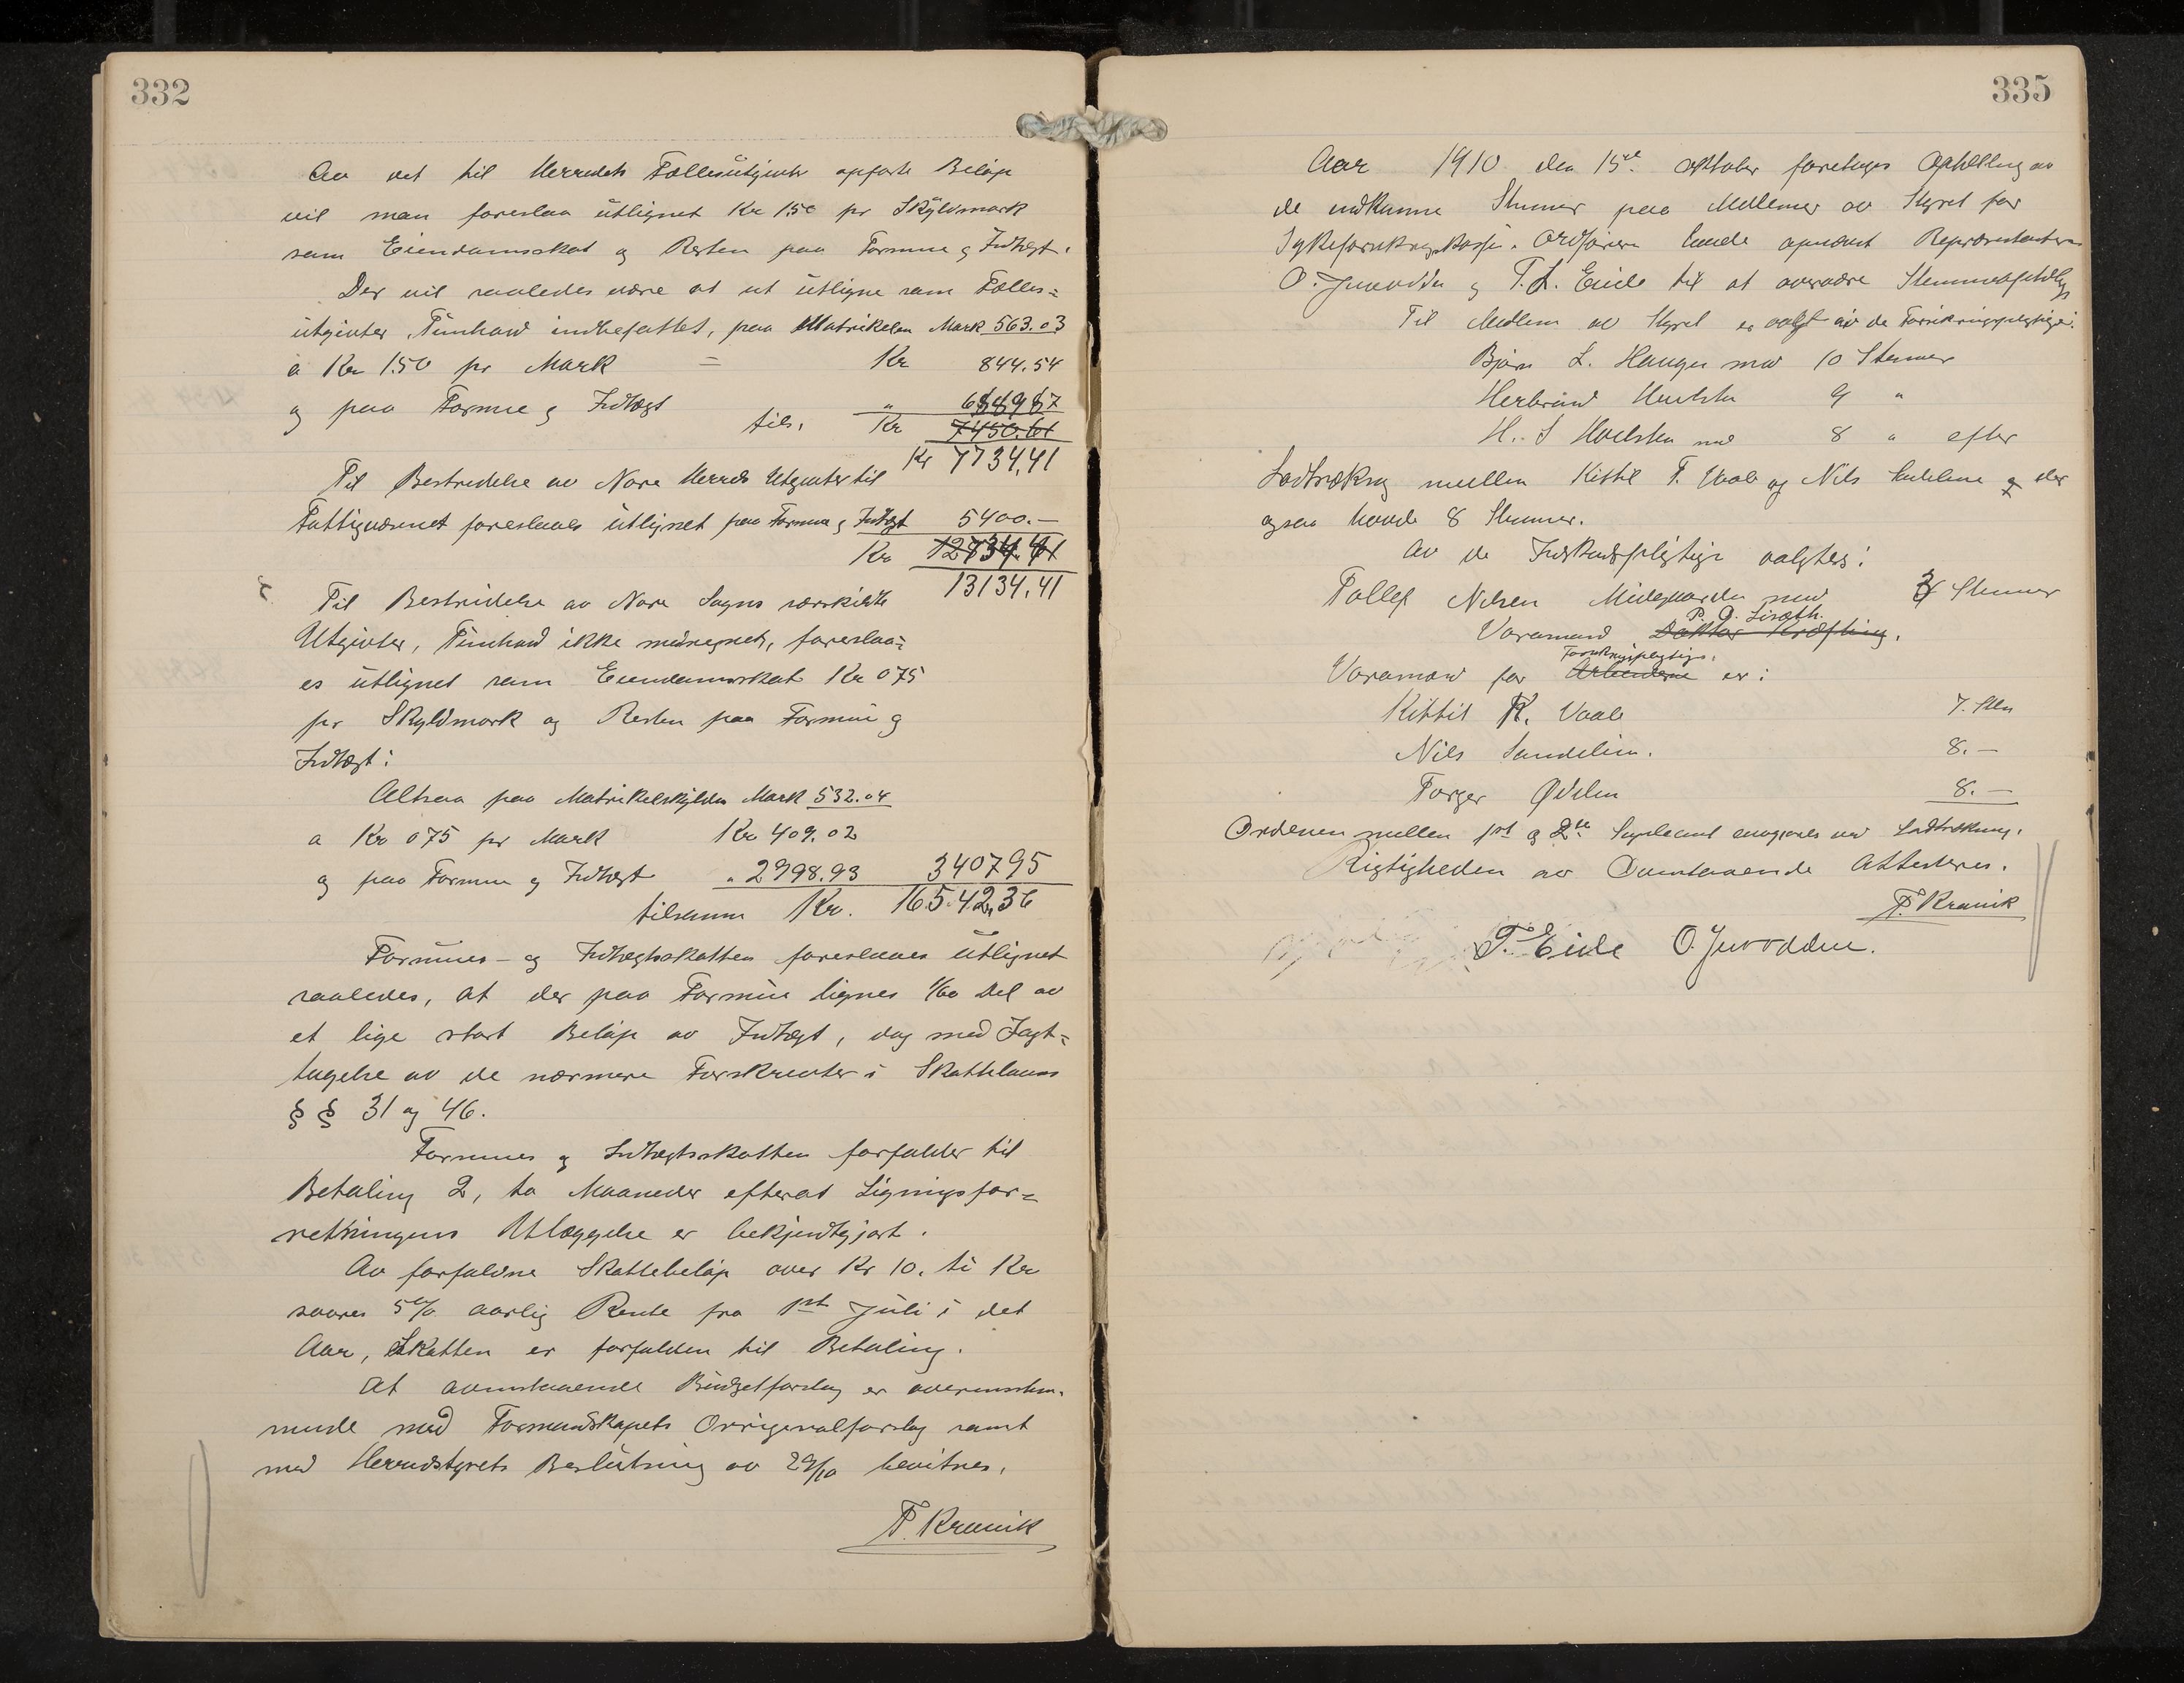 332
Av det til Herredets Fællesutgivter opførte Beløp
vil man foreslaa utlignet Kr 1.50 pr Skyldmark
som Eiendomsskat og Resten paa Formue og Indtægt.
Der vil saaledes være at utligne som Fælles=
utgivter, Tinhaw indbefattet, paa Matrikelen Mark 563.03
a Kr 1.50 pr Mark = Kr 844.54
og paa Formue og Indtægt " 688987
tils. Kr 7450.61
Kr 7734,41
Til Bestridelse av Nore Herreds Utgivter til
Fattigvæsenet foreslaaes utlignet paa Formue og Indtægt 5400.—
Kr
13134,41
Til Bestridelse av Nore Sogns særskildte
Utgivter, Tinhaw ikke medregnet, foreslaa=
es utlignet som Eiendomsskat Kr 075
pr Skyldmark og Resten paa Formue og
Indtægt:
Altsaa paa Matrikelskylden Mark 532.04
a Kr 075 pr Mark Kr 409.02
og paa Formue og Indtægt " 2998.93 340795
tilsamm Kr. 16.542,36
Formues- og Indtægtsskatten foreslaaes utlignet
saaledes, at der paa Formue lignes 1/60 Del av
et lige stort Beløp av Indtægt, dog med Iagt=
tagelse av de nærmere Forskrevter i Skattelovens
§ § 31 og 46.
Formues og Indtægtsskatten forfalder til
Betaling 2, to Maaneder efterat Ligningsfor=
retningens Utlæggelse er bekjendtgjort.
Av forfaldne Skattebeløp over Kr 10. ti Kr
svares 5% aarlig Rente fra 1st Juli i det
Aar, Skatten er forfalden til Betaling.
At ovenstaaende Budgetforslag er overensstem-
mende med Formandskapets Orrigenalforslag samt
med Herredstyrets Beslutning av 29/10 bevitnes.
T. Kravik
335
Aar 1910 den 15de oktober foretoges Optelling av
de indkomne Stemmer paa Medlemer av Styret for
Sykeforsikringskassen. Ordføreren havde opnævnt Repræsentanterne
O. Juvodden og T. L. Eide til at overvære Stemmeoptellingen
Til Medlem av Styret er valgt av de Forsikringspligtige:
Bjørn L. Haugen med 10 Stemmer
Herbrand 9 "
H. S med 8 " efter
Lodtrækning mellem Kittil T. Vaale og Nils og der
ogsaa havde 8 Stemmer.
Av de Indskudspligtige valgtes:
Tollef Nilsen Midtgaarden med 3 Stemmer
P. O. Liseth.
Varamand Doktor Kræfting.
Forsikringspligtige.
Varamæn for Arbeiderne er:
Kittil K. Vaale 7. Stm
Nils Sandelien. 8.—
Torger Ødelien 8.—
Ordenen mellem 1st og 2de Supleant avgjøres ved Lodtrækning.
Rigtigheden av Ovenstaaende Attesteres.
T. Kravik
T. L. Eide O. Juvodden.